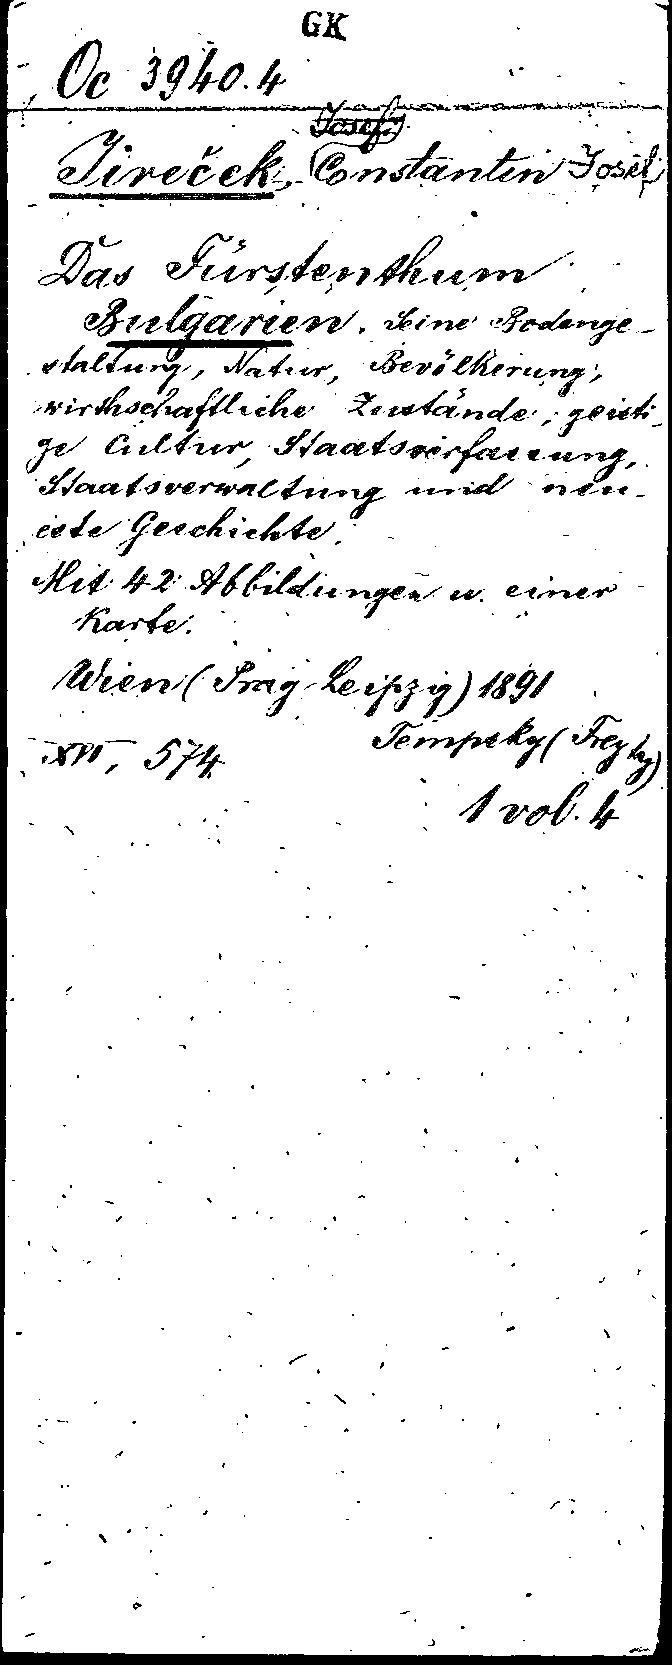 GK
Oc 3940.4
Josef
Jireček, Constantin Josef
Das Fürstenthum
Bulgarien. Seine Bodenge-
staltung, Natur, Bevölkerung,
wirthschaftliche Zustände, geisti-
ge Cultur, Staatsverfassung,
Staatsverwaltung und neu-
este Geschichte.
Mit 42 Abbildungen u. einer
Karte.
Wien (Prag Leipzig) 1891
Tempsky (Freytag)
XVI, 574
1 vol. 4